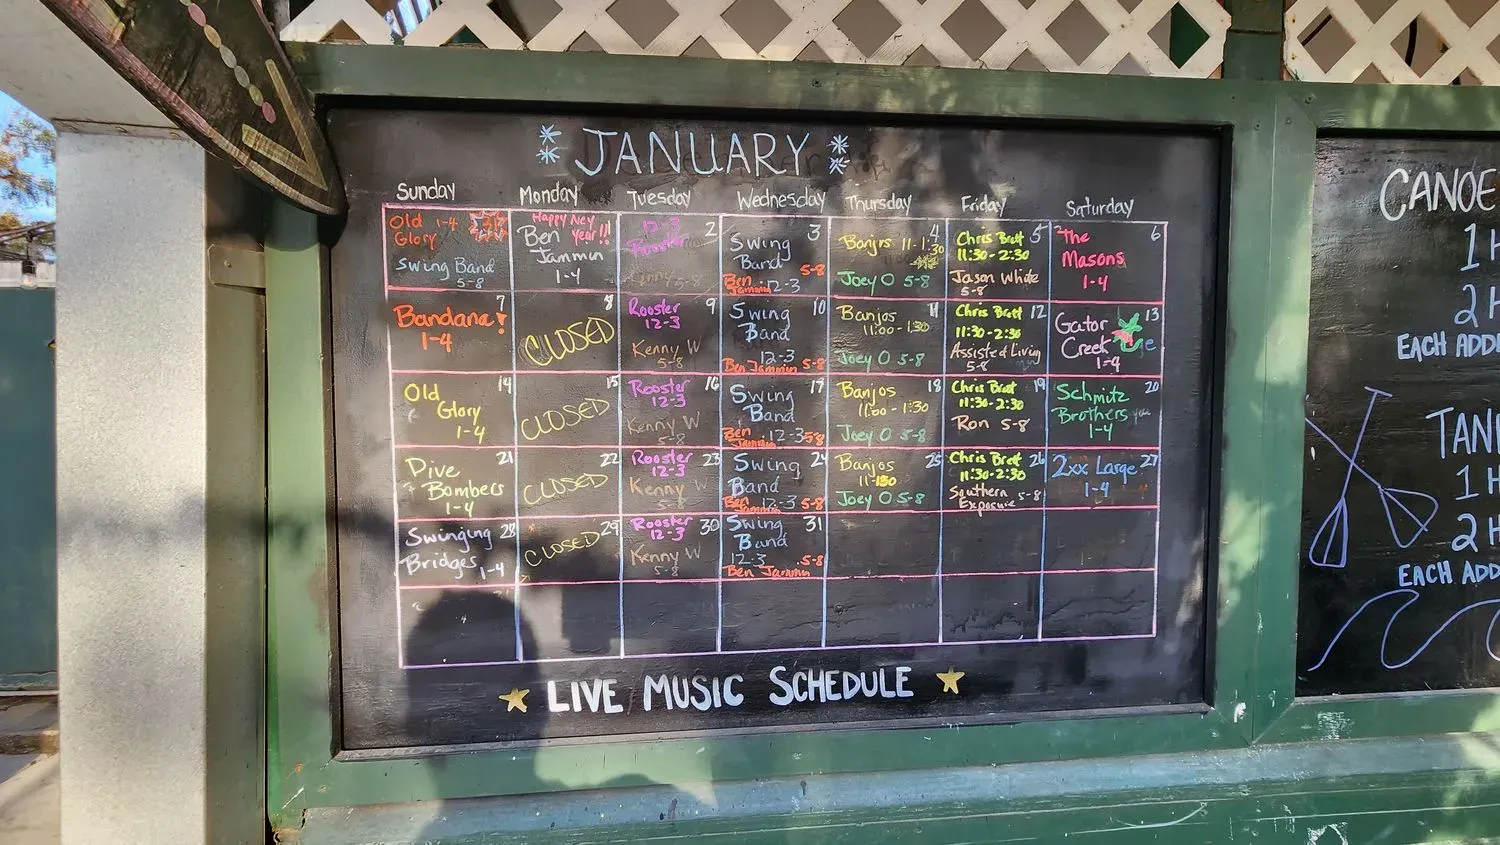 JANUARY
Sunday Monday Tuesday Wednesday Thursday Friday Saturday
Old 1-4
Glory
Swing Band
5-8
Happy New
Year!!
Ben
Jammin
1-4
2
12-3
Rooster
Kenny 5-8
3
Swing
Band
5-8
Ben
Jammin 12-3
4
Banjos 11-1:30
Joey O 5-8
5
Chris Brett
11:30-2:30
Jason White
5-8
6
The
Masons
1-4
7
Bandana!
1-4
8
CLOSED
9
Rooster
12-3
Kenny W
5-8
10
Swing
Band
12-3
Ben Jammin 5-8
11
Banjos
11:00-1:30
Joey O 5-8
12
Chris Brett
11:30-2:30
Assisted Living
5-8
13
Gator
Creek
1-4
14
Old
Glory
1-4
15
CLOSED
16
Rooster
12-3
Kenny W
5-8
17
Swing
Band
Ben 12-3 5-8
Jammin
18
Banjos
11:00-1:30
Joey O 5-8
19
Chris Brett
11:30-2:30
Ron 5-8
20
Schmitz
Brothers
1-4
21
Dive
Bombers
1-4
22
CLOSED
23
Rooster
12-3
Kenny W
5-8
24
Swing
Band
Ben 12-3 5-8
Jammin
25
Banjos
11-1:30
Joey O 5-8
26
Chris Brett
11:30-2:30
Southern 5-8
Exposure
27
2xx Large
1-4
28
Swinging
Bridges 1-4
29
CLOSED
30
Rooster
12-3
Kenny W
5-8
31
Swing
Band
12-3 5-8
Ben Jammin
LIVE MUSIC SCHEDULE
CANOE
1 H
2 H
EACH ADD
TAN
1 H
2 H
EACH ADD